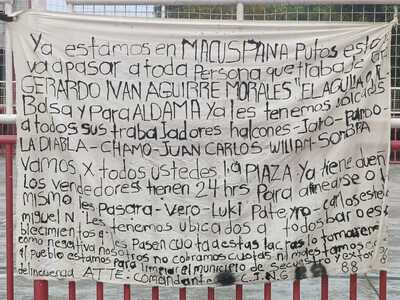 Ya estamos en MACUSPANA Putos esto
va a pasar a toda Persona que trabaje
GERARDO IVAN AGUIRRE MORALES "EL AGUILA O EL
Bolsa y Para ALDAMA Ya les tenemos
a todos sus trabajadores halcones - Joto -
LA DIABLA - CHAMO - JUAN CARLOS - WILIAM - SONORA
Vamos X todos ustedes la PLAZA Ya tiene dueñ
los vendedores tienen 24 hrs Para alinearse o L
mismo les Pasara - Vero - Luki Pate yro - carlos
miguel N les tenemos ubicados a todos bar o es
blecimientos a les Pasen cuota estas lacras lo tomaremos
como negativa nosotros no cobramos cuotas ni molestamos
el pueblo estamos Para limpiar el municipio de
delincuencia ATTE. Comandante C.J.N.G 88